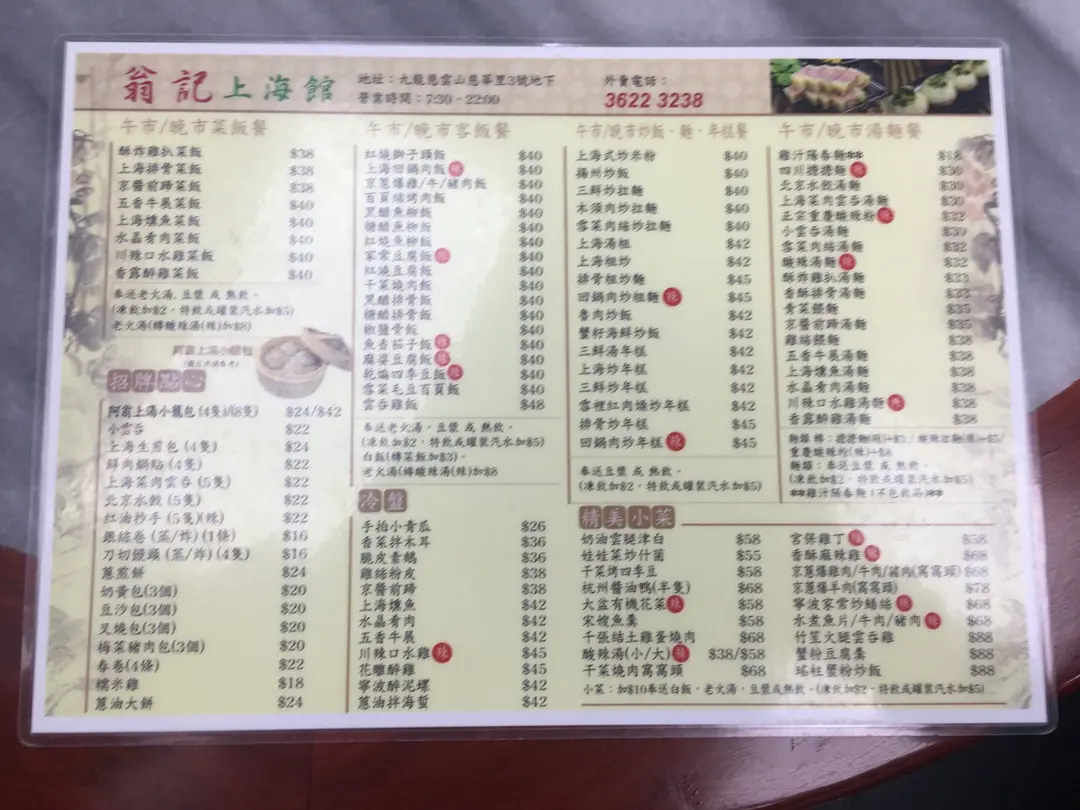 翁記上海館
地址：九龍慈雲山慈華里3號地下
營業時間：7:30 - 22:00
外賣電話：
3622 3238
午市/晚市菜飯餐
酥炸雞扒菜飯 $38
上海排骨菜飯 $38
京醬前蹄菜飯 $38
五香牛展菜飯 $40
上海燻魚菜飯 $40
水晶肴肉菜飯 $40
川辣口水雞菜飯 $40
香露醉雞菜飯 $40
奉送老火湯，豆漿 或 熱飲。
(凍飲加$2，特飲或罐裝汽水加$5)
老火湯(轉酸辣湯(辣)加$8)
阿翁上湯小籠包
招牌點心
阿翁上湯小籠包 (4隻)/(8隻) $24/$42
小雲吞 $22
上海生煎包 (4隻) $24
鮮肉鍋貼 (4隻) $22
上海菜肉雲吞 (5隻) $22
北京水餃 (5隻) $22
紅油抄手 (5隻)(辣) $22
銀絲卷 (蒸/炸) (1條) $16
刀切饅頭 (蒸/炸) (4隻) $16
蔥煎餅 $24
奶黃包(3個) $20
豆沙包(3個) $20
叉燒包(3個) $20
梅菜豬肉包(3個) $20
春卷(4條) $22
糯米雞 $18
蔥油大餅 $24
午市/晚市客飯餐
紅燒獅子頭飯 $40
上海回鍋肉飯 辣 $40
京蔥爆雞/牛/豬肉飯 $40
百頁結烤肉飯 $40
黑醋魚柳飯 $40
糖醋魚柳飯 $40
紅燒魚柳飯 $40
家常豆腐飯 辣 $40
紅燒豆腐飯 $40
干菜燒肉飯 $40
黑醋排骨飯 $40
糖醋排骨飯 $40
椒鹽骨飯 $40
魚香茄子飯 辣 $40
麻婆豆腐飯 辣 $40
乾煸四季豆飯 辣 $40
雪菜毛豆百頁飯 $40
雲吞雞飯 $48
奉送老火湯，豆漿 或 熱飲。
(凍飲加$2，特飲或罐裝汽水加$5)
白飯(轉菜飯加$3)。
老火湯(轉酸辣湯(辣)加$8
冷盤
手拍小青瓜 $26
香菜拌木耳 $36
脆皮素鵝 $36
雞絲粉皮 $38
京醬前蹄 $38
上海燻魚 $42
水晶肴肉 $42
五香牛展 $42
川辣口水雞 辣 $45
花雕醉雞 $45
寧波醉泥螺 $42
蔥油拌海蜇 $42
午市/晚市炒飯、麵、年糕餐
上海式炒米粉 $40
揚州炒飯 $40
三鮮炒拉麵 $40
木須肉炒拉麵 $40
雪菜肉絲炒拉麵 $40
上海湯粗 $42
上海粗炒 $42
排骨粗炒麵 $45
回鍋肉炒粗麵 辣 $45
魯肉炒飯 $42
蟹籽海鮮炒飯 $42
三鮮湯年糕 $42
上海炒年糕 $42
三鮮炒年糕 $42
雪裡紅肉燥炒年糕 $42
排骨炒年糕 $45
回鍋肉炒年糕 辣 $45
奉送豆漿 或 熱飲。
(凍飲加$2，特飲或罐裝汽水加$5)
午市/晚市湯麵餐
雞汁陽春麵** $18
四川擔擔麵 辣 $30
北京水餃湯麵 $30
上海菜肉雲吞湯麵 $30
正宗重慶酸辣粉 辣 $32
小雲吞湯麵 $30
雪菜肉絲湯麵 $32
酸辣湯麵 辣 $32
酥炸雞扒湯麵 $33
香酥排骨湯麵 $33
青菜餵麵 $35
京醬前蹄湯麵 $35
雞絲餵麵 $38
五香牛展湯麵 $38
上海燻魚湯麵 $38
水晶肴肉湯麵 $38
川辣口水雞湯麵 辣 $38
香露醉雞湯麵 $38
麵類：奉送豆漿 或 熱飲。
(凍飲加$2，特飲或罐裝汽水加$5)
**雞汁陽春麵 (不包飲品)**
精美小菜
奶油雲腿津白 $58
娃娃菜炒什菌 $55
干菜烤四季豆 $58
杭州醬油鴨(半隻) $68
大盆有機花菜 辣 $58
宋嫂魚羹 $58
千張結土雞蛋燒肉 $68
酸辣湯(小/大) 辣 $38/$58
干菜燒肉窩窩頭 $68
宮保雞丁 辣 $58
香酥麻辣雞 辣 $68
京蔥爆雞肉/牛肉/豬肉(窩窩頭) $68
京蔥爆羊肉(窩窩頭) $78
寧波家常炒鱔絲 辣 $68
水煮魚片/牛肉/豬肉 辣 $68
竹笙火腿雲吞雞 $88
蟹粉豆腐羹 $88
瑤柱蟹粉炒飯 $88
小菜：加$10奉送白飯，老火湯，豆漿或熱飲。(凍飲加$2，特飲或罐裝汽水加$5)